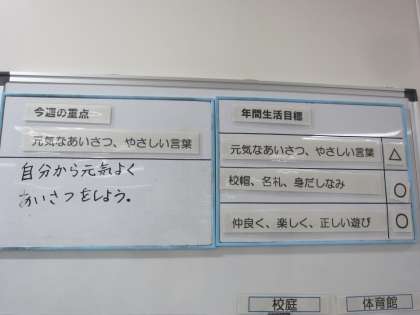 今週の重点
元気なあいさつ、やさしい言葉
自分から元気よく
あいさつをしよう。
年間生活目標
元気なあいさつ、やさしい言葉 △
校帽、名札、身だしなみ ○
仲良く、楽しく、正しい遊び ○
校庭
体育館